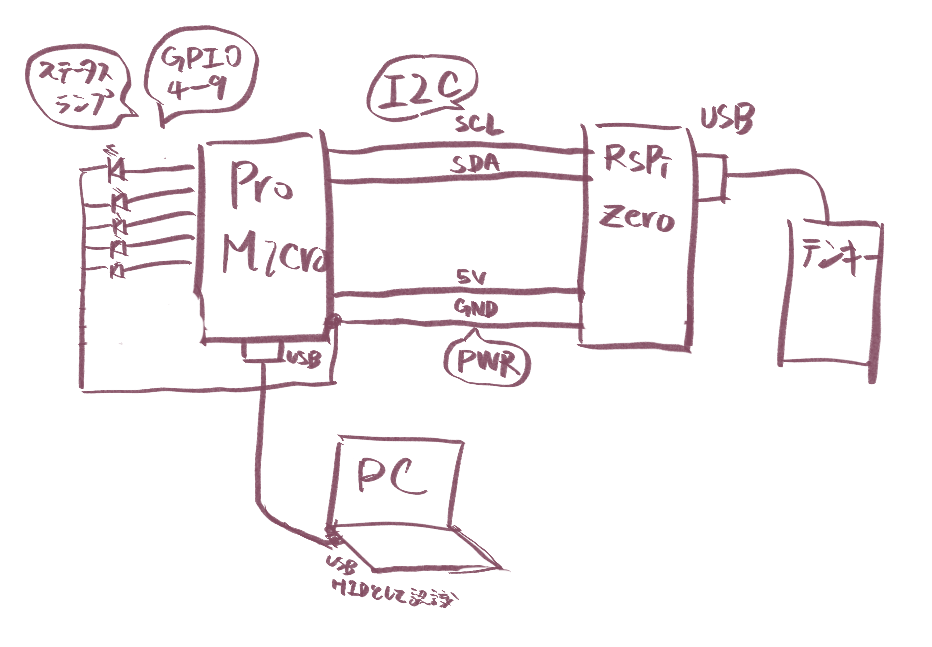 ステータス
ランプ
GPIO
4-9
I2C
SCL
SDA
Pro
Micro
RSPi
Zero
USB
テンキー
5V
GND
PWR
USB
PC
USB
HIDとして認識